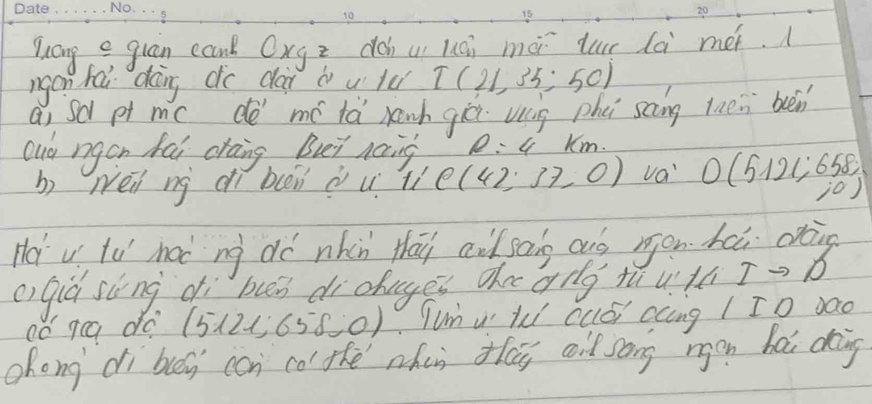 Date ...... No. ... 5 10 15 20
Trong e gian oanh Oxyz đơn vị trên mỗi trục là mét. 1
ngọn hải đăng đc đặt ở vị trí I (21; 35; 50)
a, sd pt mc để mô tả ranh giới vùng phủ sáng trên biển
của ngọn hải đăng Biết rằng R = 4 km.
b) Nếu ng đi biển ở vị trí C(42; 37; 0) và D(5121; 658;
;0)
Hỏi vị trí nào ng đó nhìn thấy ánh sáng của ngọn hải đăng
c) giả sử ng đi biển di chuyển theo đg từ vị trí I → D
có tọa độ (5121; 658; 0). Tìm vị trí cuối cùng / ID sao
cho ng đi biển còn có thể nhìn thấy ánh sáng ngọn hải đăng